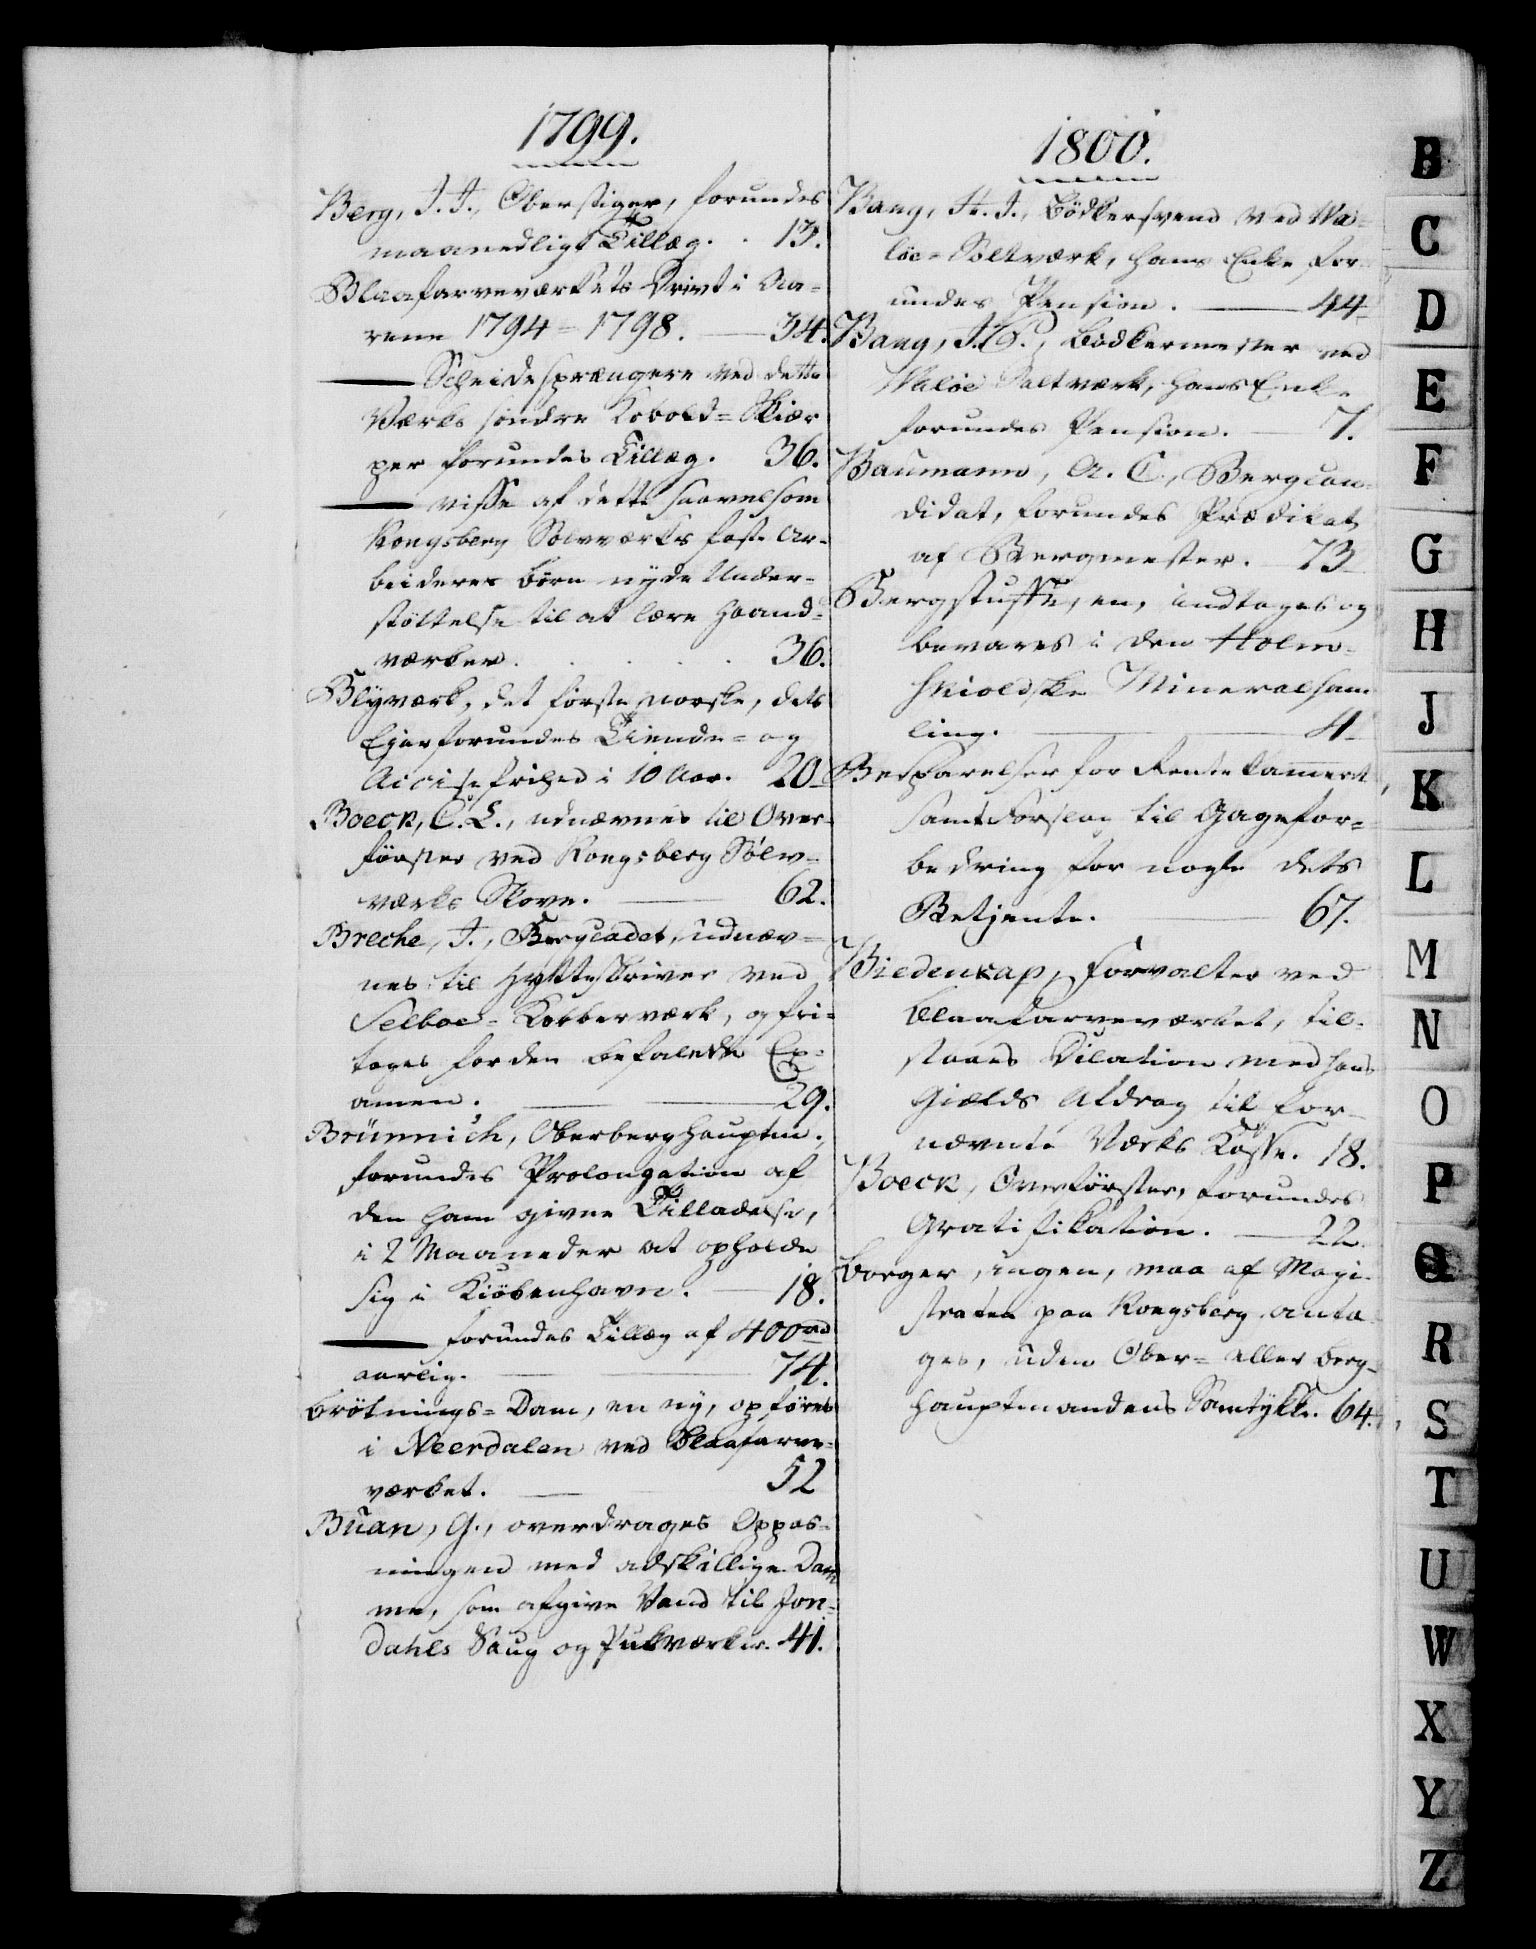 1799.
Berg, J. J., Oberstiger, forundes
maanedligt Tillæg. . 13.
Blaafarveværkets Drivt i Aa-
rene 1794 - 1798. — 34.
— Scheidesprængere ved dette
Værks søndre Kobold-Skiær
per forundes Tillæg. 36.
— visse af dette saavelsom
Kongsberg Sølvværks faste Ar-
beideres Børn nyde Under-
støttelse til at lære Haand-
værker. . . . . 36.
Blyværk, det første norske, dets
Ejer forundes Tiende- og
Accisefrihed i 10 Aar. 20
Boeck, C. L., udnævnes til Over-
førster ved Kongsberg Sølv-
værks Skove. — 62.
Breche, J., Bergcadet, udnæv-
nes til Hytteskriver ved
Selboe-Kobberværk, og fri-
tages for den befalede Ex-
amen. — 29.
Brünnich, Oberberghauptm.,
forundes Prolongation af
den ham givne Tilladelse,
i 2 Maaneder at opholde
sig i Kiøbenhavn. — 18.
— forundes Tillæg af 400 rd
aarlig. — 74.
Brötnings-Dam, en ny, opføres
i Neerdalen ved Blaafarve-
værket. — 52
Buan, G., overdrages Oppas-
ningen med adskillige Dam
me, som afgive Vand til Jon-
dahls Saug og Pukværker. 41.
1800.
Bang, H. J., Bødkersvend ved Va-
løe-Saltværk, hans Enke for-
undes Pension. — 44
Bang, J. P., Bødkermester ved
Valøe Saltværk, hans Enke
forundes Pension. — 7.
Baumann, A. C., Bergcan-
didat, forundes Prædikat
af Bergmester. 73
Bergstuffe, en, indtages og
bevares i den Holm-
skioldske Mineralsam
ling. — 4
Besparelser for Rentekammeret
samt Forslag til Gagefor-
bedring for nogle dets
Betjente. — 67.
Biedenkap, Forvalter ved
Blaafarveværket, til-
staaes Dilation med hans
Gields Afdrag til for-
nævnte Værks Kasse. 18.
Boeck, Overførster, forundes
Gratifikation. — 22.
Borger, ingen, maa af Magi-
straten paa Kongsberg anta-
ges, uden Ober- eller Berg-
hauptmandens Samtykke. 64.
B
C
D
E
F
G
H
J
K
L
M
N
O
P
Q
R
S
T
U
W
X
Y
Z